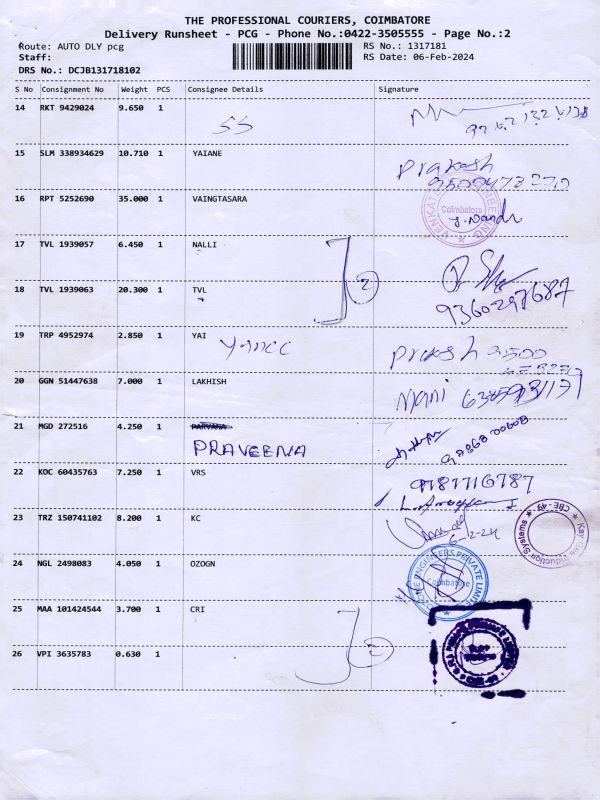 THE PROFESSIONAL COURIERS, COIMBATORE
Delivery Runsheet - PCG - Phone No.:0422-3505555 - Page No.:2
Route: AUTO DLY pcg RS No.: 1317181
Staff: RS Date: 06-Feb-2024
DRS No.: DCJB131718102
S No Consignment No Weight PCS Consignee Details Signature
14 RKT 9429024 9.650 1
SS
15 SLM 338934629 10.710 1 YAIANE
Prakash
16 RPT 5252690 35.000 1 VAINGTASARA
Coimbatore
17 TVL 1939057 6.450 1 NALLI
2
18 TVL 1939063 20.300 1 TVL
9360297687
19 TRP 4952974 2.850 1 YAI
Prakash 9500
20 GGN 51447638 7.000 1 LAKHISH
Mani
21 MGD 272516 4.250 1 PARVANA
PRAVEENA
22 KOC 60435763 7.250 1 VRS
9787716787
23 TRZ 150741102 8.200 1 KC
6-2-24
CBE-49
24 NGL 2498083 4.050 1 OZOGN
ENGINEERS PRIVATE LIMITED
Coimbatore
25 MAA 101424544 3.700 1 CRI
2
26 VPI 3635783 0.630 1